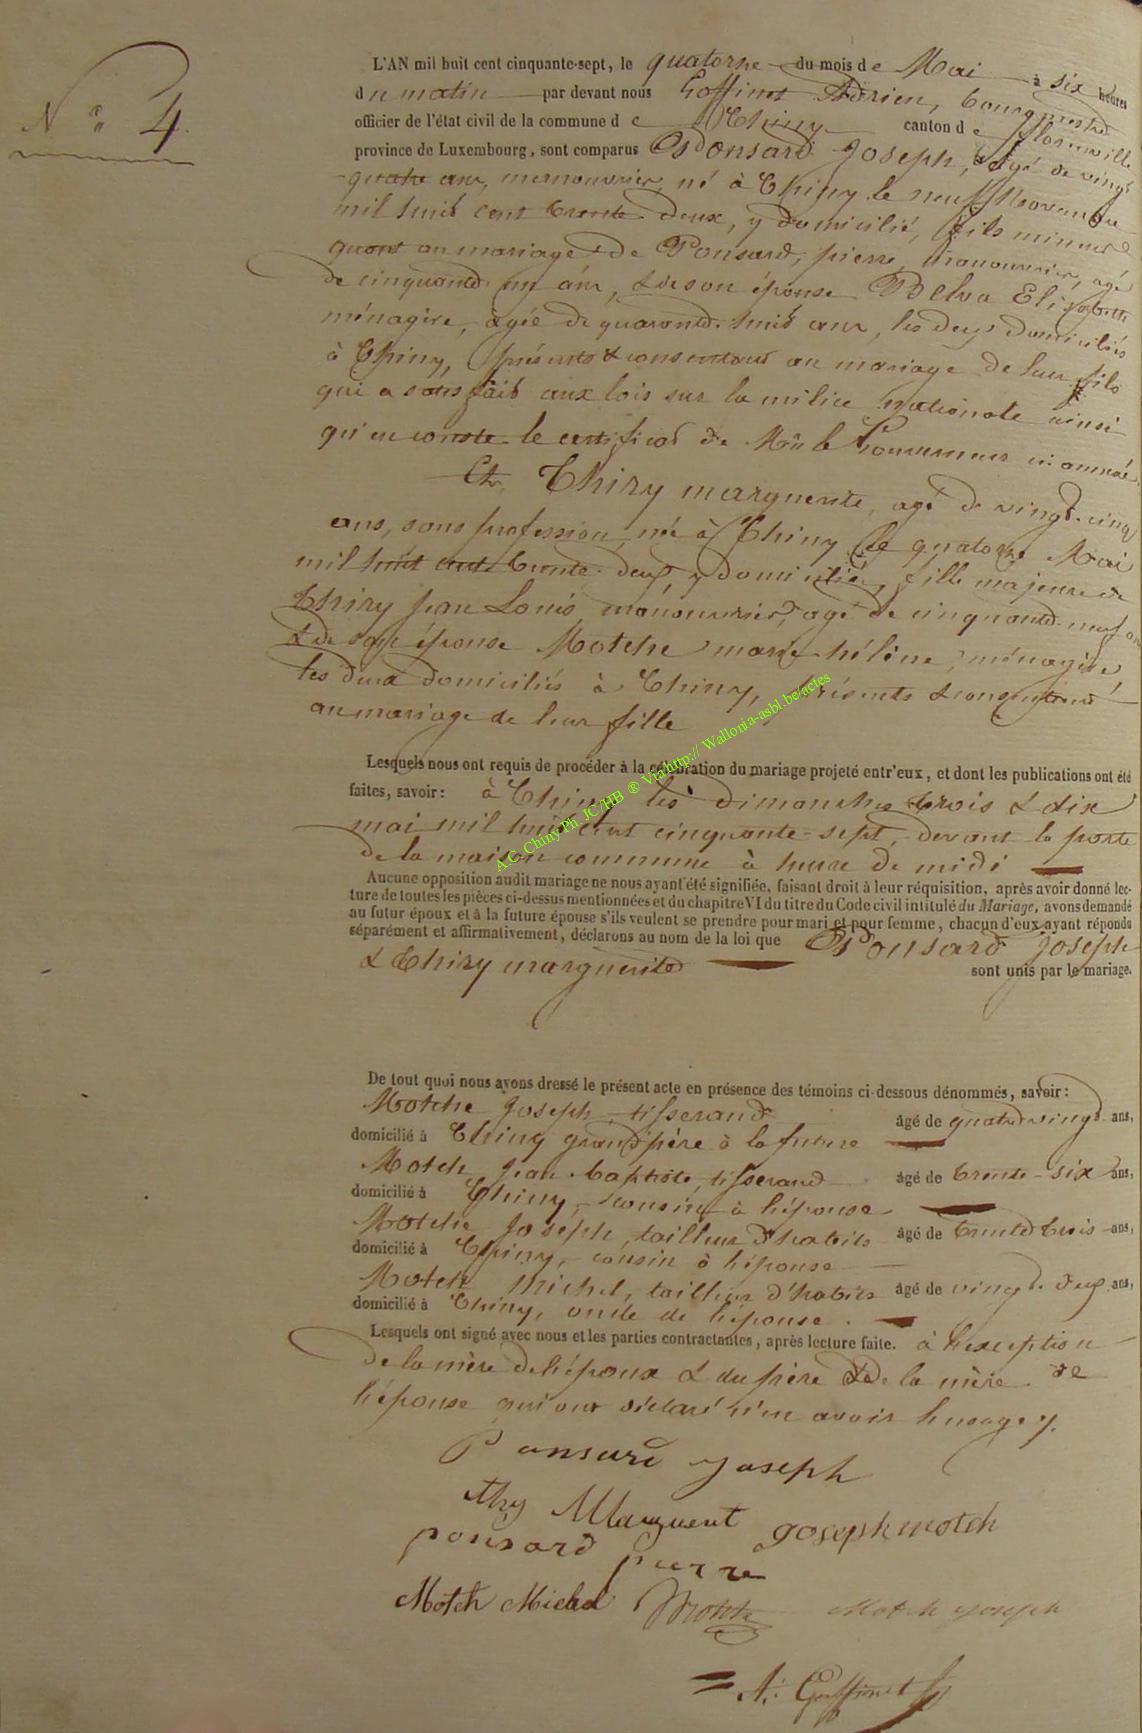 N° 4.
L'AN mil huit cent cinquante-sept, le quatorze du mois de Mai à six heures
du matin par devant nous Goffinet Adrien, bourgmestre
officier de l'état civil de la commune de Chiny canton de florenville
province de Luxembourg, sont comparus Ponsard Joseph, agé de vingt
quatre ans, manouvrier, né à Chiny le neuf Novembre
mil huit cent trente deux, y domicilié, fils mineur
quant au mariage de Ponsard, pierre, manouvrier, agé
de cinquante un ans, & de son épouse Belva Elisabeth
ménagère, agée de quarante huit ans, les deux domiciliés
à Chiny, présents & consentans au mariage de leur fils
qui a satisfait aux lois sur la milice nationale ainsi
qu'en conste le certificat de Mr le Gouverneur ci annexé.
Et Thiry marguerite, agé de vingt-cinq
ans, sans profession, née à Chiny le quatorze Mai
mil huit cent trente deux, y domiciliée, fille majeure de
Thiry Jean Louis manouvrier, agé de cinquante neuf ans
& de son épouse Motche marie hélène, ménagère,
les deux domiciliés à Chiny, présents & consentans
au mariage de leur fille
Lesquels nous ont requis de procéder à la célébration du mariage projeté entr'eux, et dont les publications ont été
faites, savoir: à Chiny les dimanches trois & dix
mai mil huit cent cinquante-sept, devant la porte
de la maison commune à heure de midi
A.C. Chiny Ph. JC/HB ® Via http:// Wallonia-asbl.be/actes
Aucune opposition audit mariage ne nous ayant été signifiée, faisant droit à leur réquisition, après avoir donné lec-
ture de toutes les pièces ci-dessus mentionnées et du chapitre VI du titre du Code civil intitulé du Mariage, avons demandé
au futur époux et à la future épouse s'ils veulent se prendre pour mari et pour femme, chacun d'eux ayant répondu
séparément et affirmativement, déclarons au nom de la loi que Ponsard Joseph
& Thiry marguerite sont unis par le mariage.
De tout quoi nous avons dressé le présent acte en présence des témoins ci-dessous dénommés, savoir:
Motche Joseph, tisserand âgé de quatrevingt ans,
domicilié à Chiny grand'père à la future
Motch Jean baptiste, tisserand âgé de trente-six ans,
domicilié à Chiny, cousin à l'épouse
Motche Joseph, tailleur d'habits âgé de trente trois ans,
domicilié à Chiny, cousin à l'épouse
Motch Michel, tailleur d'habits âgé de vingt deux ans,
domicilié à Chiny, oncle de l'épouse.
Lesquels ont signé avec nous et les parties contractantes, après lecture faite. à l'exception
de la mère de l'époux & du père & de la mère de
l'épouse qui ont déclaré n'en avoir l'usage.
Ponsard Joseph
Marguerit Joseph motch
ponsard pierre
Motch Michel Motch Motch joseph
A: Goffinet